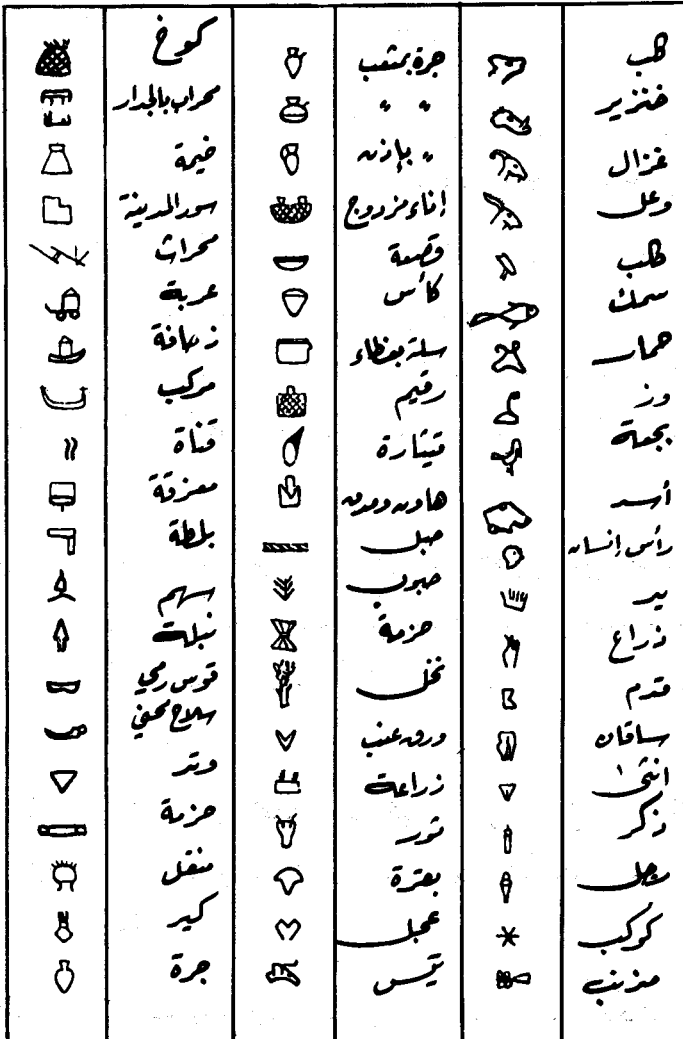 كلب
خنزير
غزال
وعل
كلب
سمك
حمار
وز
بجعة
أسد
رأس إنسان
يد
ذراع
قدم
ساقان
انثى
ذكر
رجل
كوكب
مذنب
جرة بمثعب
" "
" بإذن
إناء مزدوج
قصعة
كأس
سلة بغطاء
رقيم
قيثارة
هاون ومدق
حبل
حبوب
حزمة
نخل
ورق عنب
زراعة
ثور
بقرة
عجل
تيس
كوخ
محراب بالجدار
خيمة
سور المدينة
محراث
عربة
زحافة
مركب
قناة
معزقة
بلطة
سهم
نبلة
قوس رمي
سلاح محني
وتد
حزمة
منقل
كير
جرة